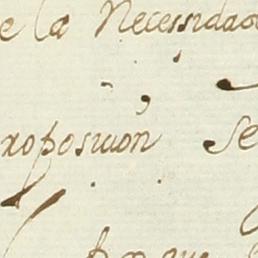 e la Necessidad
roposicion Se